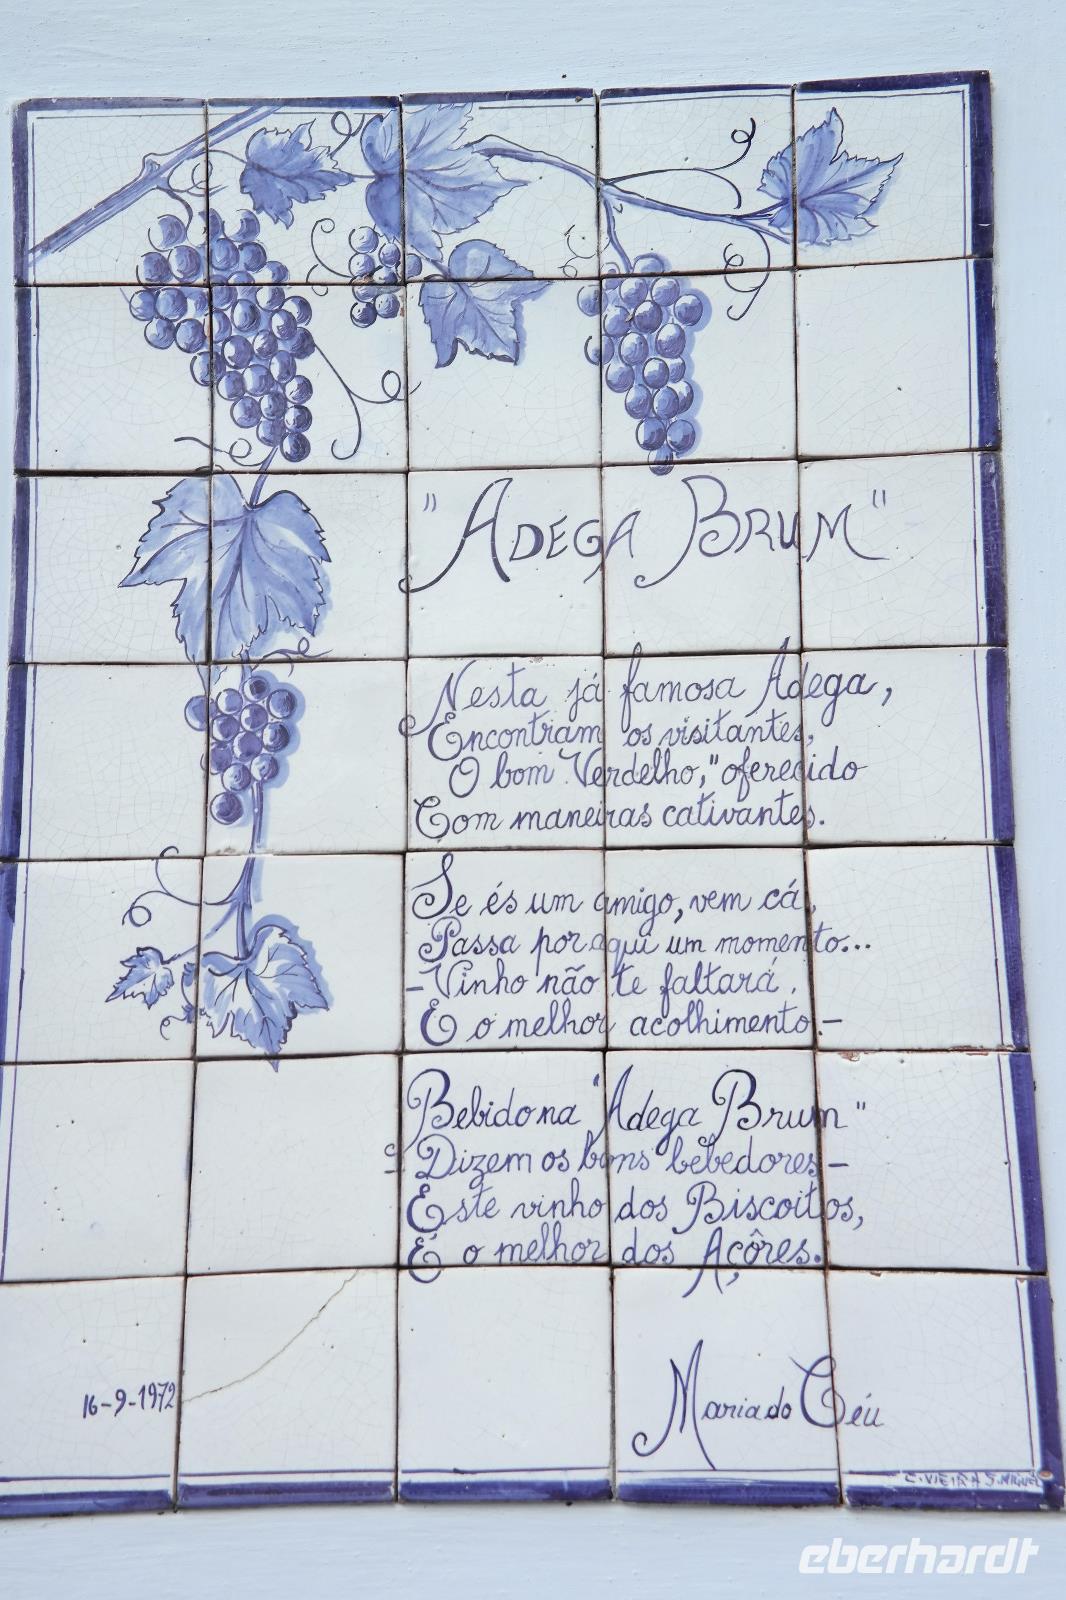 "ADEGA BRUM"
Nesta já famosa Adega,
Encontram os visitantes,
O bom Verdelho," oferecido
Com maneiras cativantes.
Se és um amigo, vem cá,
Passa por aqui um momento...
-Vinho não te faltará.
E o melhor acolhimento.-
Bebido na "Adega Brum"
- Dizem os bons bebedores -
Este vinho dos Biscoitos,
É o melhor dos Açôres.
16-9-1972
Maria do Céu
C. VIEIRA S. MIGUEL
eberhardt